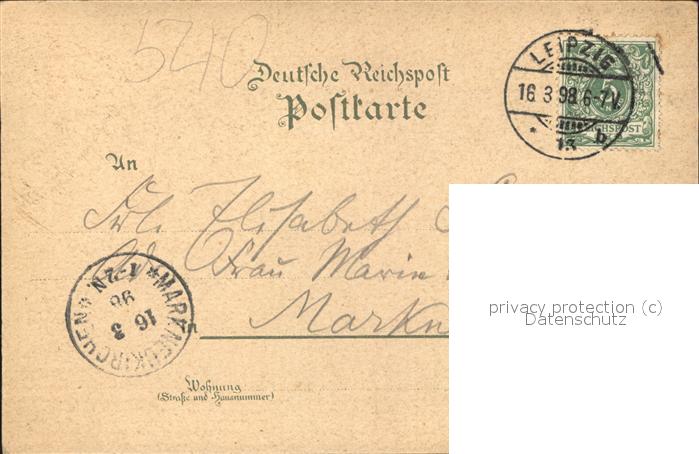 5240
Deutsche Reichspost
Postkarte
LEIPZIG
16 3 98 6-7V.
* 13 b
5
REICHSPOST
An
Frl. Elisabeth
Frau Marie
Markn
Wohnung
(Straße und Hausnummer)
*MARKNEUKIRCHEN*
16 3
98
1-2N.
privacy protection (c)
Datenschutz